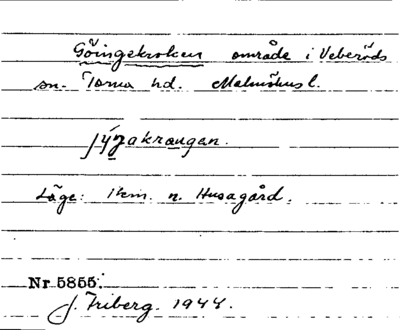 Göingekroken område i Veberöds
sn. Torna hd. Malmöhus l.
jýŋakraugan.
Läge: 1 km. n. Husagård.
Nr 5855.
J. Friberg. 1944.